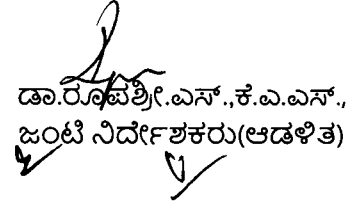 ಡಾ.ರೂಪಶ್ರೀ.ಎಸ್.,ಕೆ.ಎ.ಎಸ್.,
ಜಂಟಿ ನಿರ್ದೇಶಕರು(ಆಡಳಿತ)